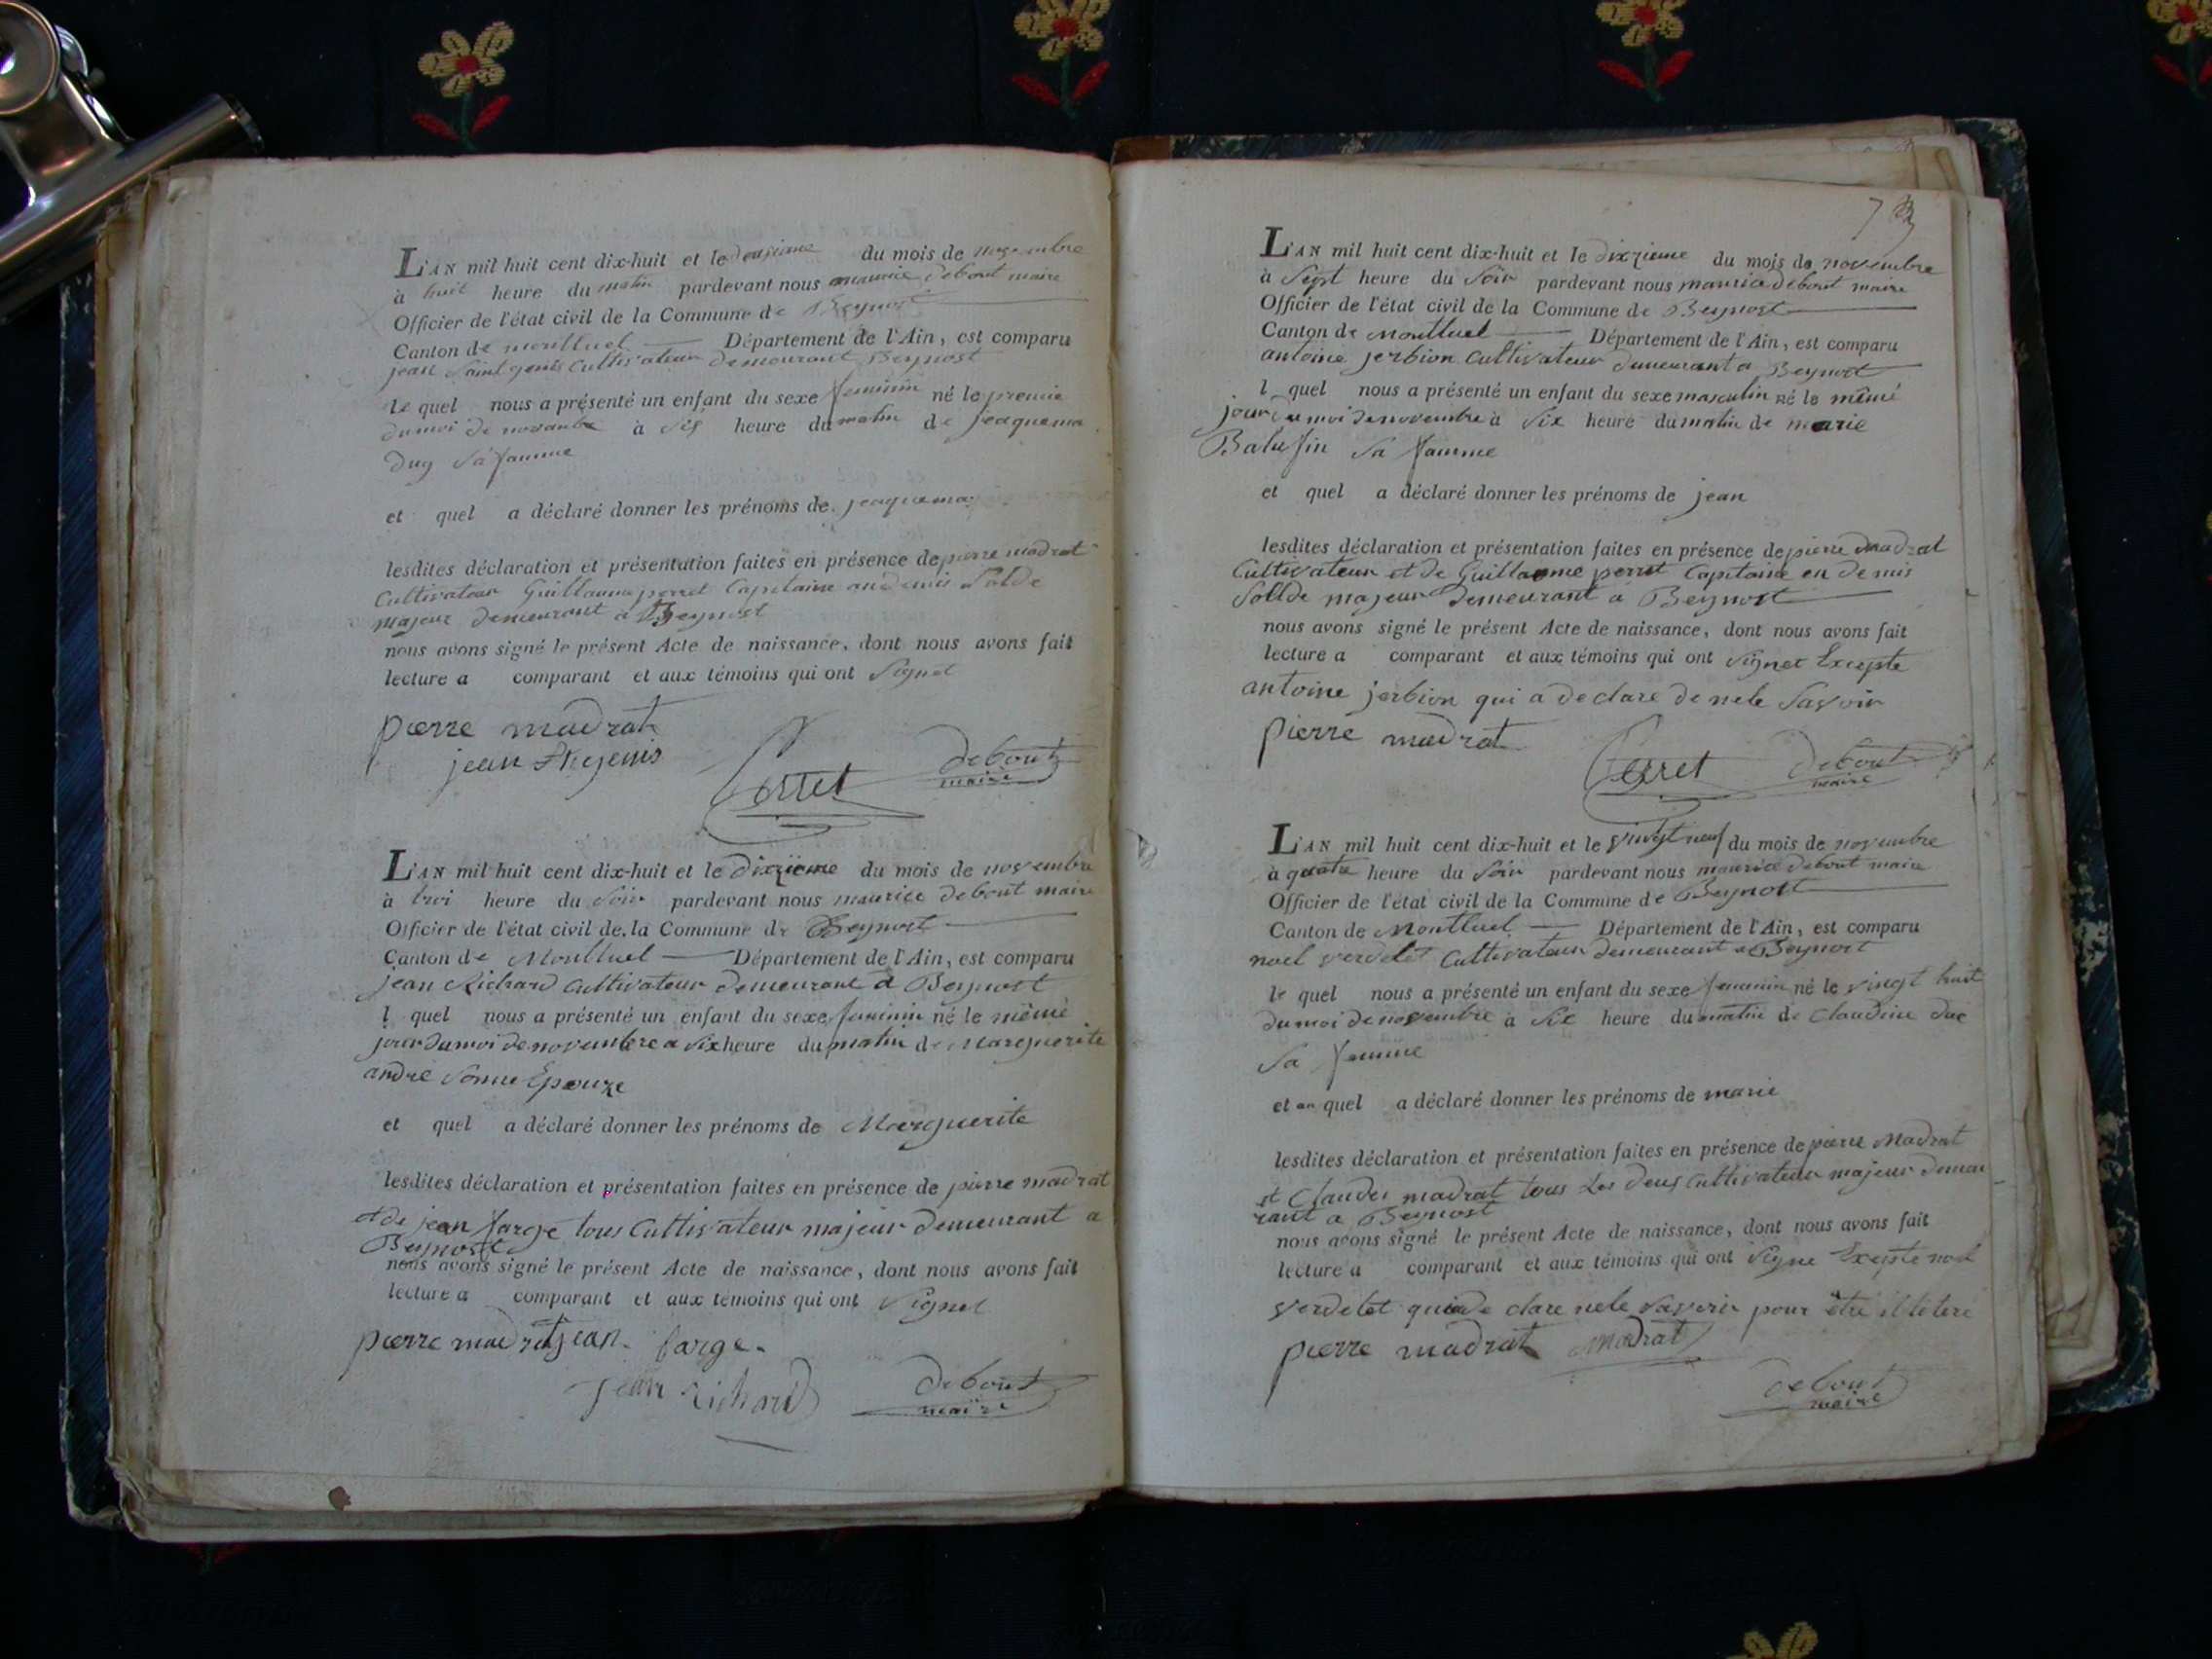 L'AN mil huit cent dix-huit et le deuxieme du mois de novembre
à huit heure du matin pardevant nous maurice debout maire
Officier de l'état civil de la Commune de Beynost
Canton de montluel Département de l'Ain, est comparu
jean Saint genis Cultivateur demeurant Beynost
le quel nous a présenté un enfant du sexe feminin né le premie
du moi de novanbre à Six heure du matin de jeaquema
dug Sa famme
et quel a déclaré donner les prénoms de jeaquema
lesdites déclaration et présentation faites en présence de pierre madrat
Cultivateur Guillaume perret Capitaine en demis Solde
majeur demeurant a Beynost
nous avons signé le présent Acte de naissance, dont nous avons fait
lecture a comparant et aux témoins qui ont Signet
pierre madrat
jean
Perret
debout
maire
L'AN mil huit cent dix-huit et le dixzieme du mois de novembre
à troi heure du Soir pardevant nous maurice debout maire
Officier de l'état civil de la Commune de Beynost
Canton de Montluel Département de l'Ain, est comparu
jean Richard Cultivateur demeurant a Beynost
l quel nous a présenté un enfant du sexe feminin né le même
jour du moi de novembre a Six heure du matin de Marguerite
andre Sonne Epouze
et quel a déclaré donner les prénoms de Marguerite
lesdites déclaration et présentation faites en présence de pierre madrat
et de jean farge tous Cultivateur majeur demeurant a
Beynost
nous avons signé le présent Acte de naissance, dont nous avons fait
lecture a comparant et aux témoins qui ont Signet
pierre madrat jean farge
jean Richard
debout
maire
L'AN mil huit cent dix-huit et le dixzieme du mois de novembre
à Sept heure du Soir pardevant nous maurice debout maire
Officier de l'état civil de la Commune de Beynost
Canton de Montluel Département de l'Ain, est comparu
antoine jerbion Cultivateur demeurant a Beynost
l quel nous a présenté un enfant du sexe masculin né le même
jour du moi de novembre à Six heure du matin de marie
Balufin Sa famme
et quel a déclaré donner les prénoms de jean
lesdites déclaration et présentation faites en présence de pierre Madrat
Cultivateur et de Guillaume perret Capitaine en demis
Sollde majeur demeurant a Beynost
nous avons signé le présent Acte de naissance, dont nous avons fait
lecture a comparant et aux témoins qui ont Signet Excepte
antoine jerbion qui a declare de ne le Savoir
pierre madrat
Perret
debout
maire
L'AN mil huit cent dix-huit et le vingt neuf du mois de novembre
à quatre heure du Soir pardevant nous maurice debout maire
Officier de l'état civil de la Commune de Beynost
Canton de Montluel Département de l'Ain, est comparu
noel verdelet Cultivateur demeurant a Beynost
le quel nous a présenté un enfant du sexe feminin né le vingt huit
du moi de novembre à Six heure du matin de Claudine duc
Sa femme
et au quel a déclaré donner les prénoms de marie
lesdites déclaration et présentation faites en présence de pierre Madrat
et Claudes madrat tous Les deus Cultivateur majeur demeu
rant a Beynost
nous avons signé le présent Acte de naissance, dont nous avons fait
lecture a comparant et aux témoins qui ont Signe Excepte noel
verdelet qui a de clare ne le Savoir pour être illitere
pierre madrat Madrat
debout
maire